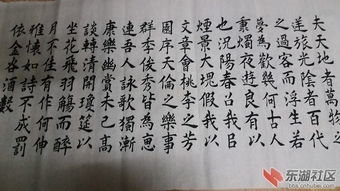 夫天地者萬物之
逆旅光陰者百代
之過客而浮生若
夢為歡幾何古人
秉燭夜遊良有以
也況陽春召我以
煙景大塊假我以
文章會桃李之芳
園序天倫之樂事
群季俊秀皆為惠
連吾人詠歌獨慚
康樂幽賞未已高
談轉清開瓊筵以
坐花飛羽觴而醉
月不佳有作何伸
雅懷如詩不成罰
依金谷酒數
东湖社区
bbs.cnhubei.com